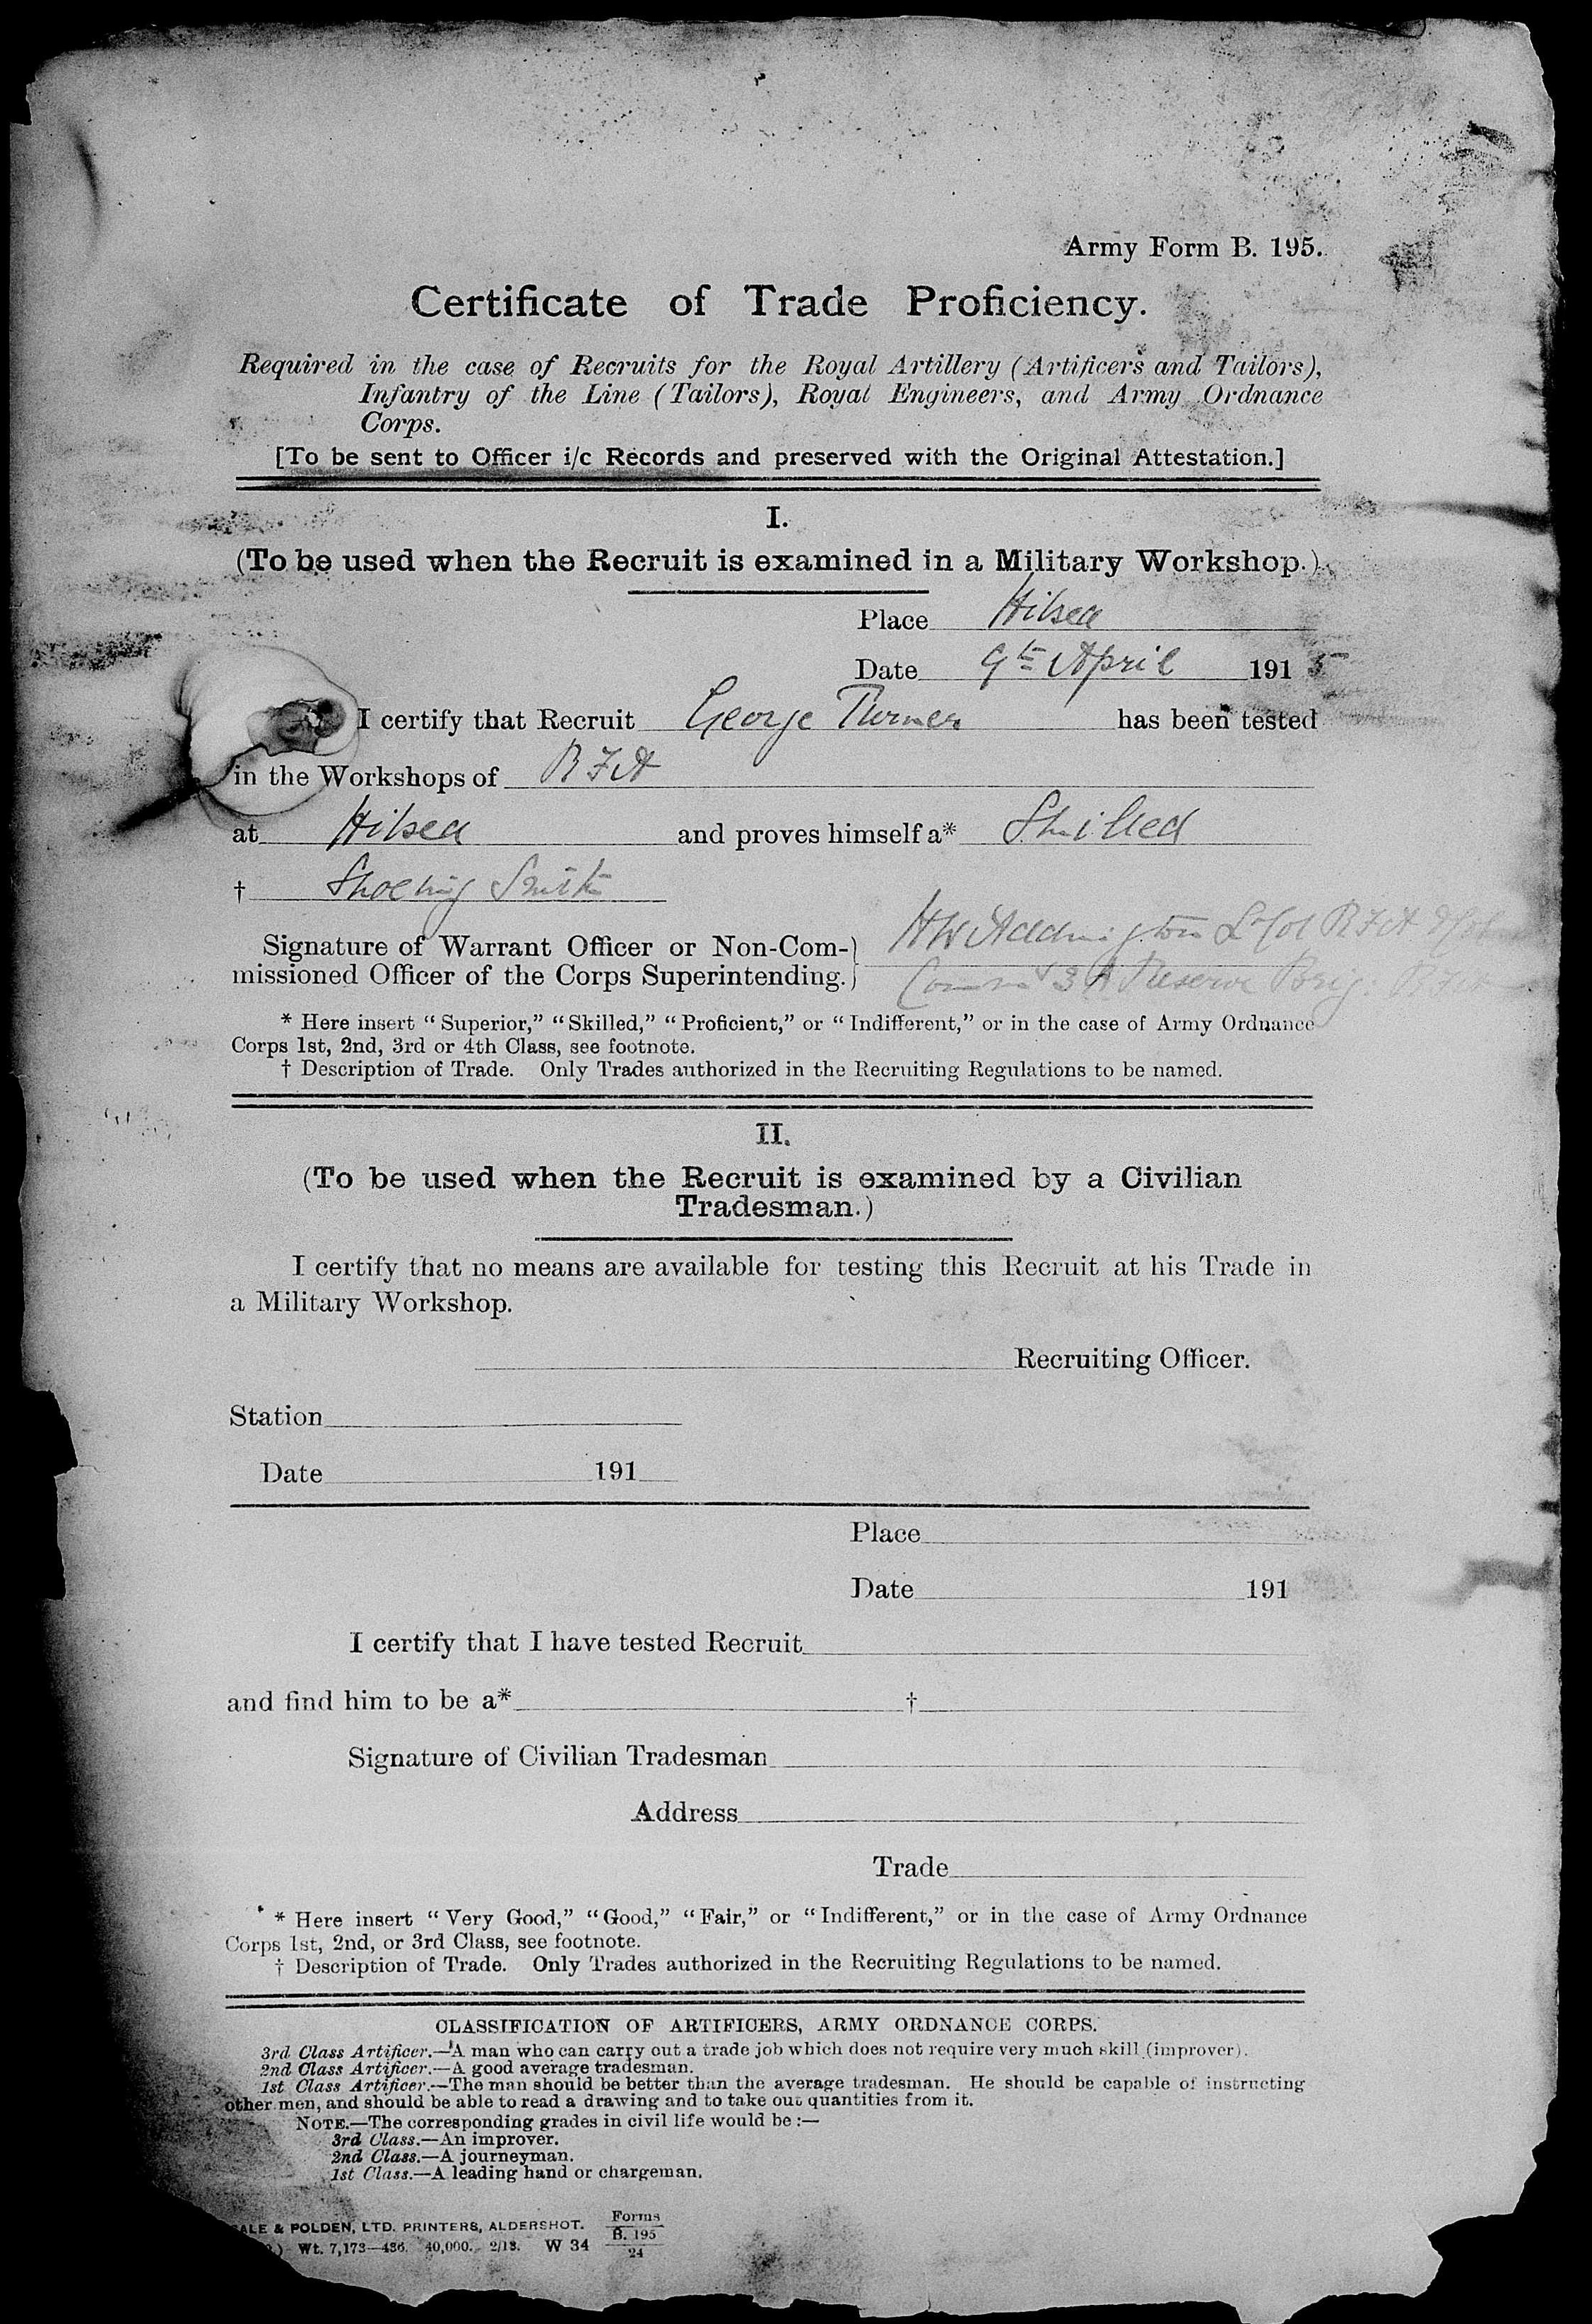 Army Form B. 195.
Certificate of Trade Proficiency.
Required in the case of Recruits for the Royal Artillery (Artificers and Tailors),
Infantry of the Line (Tailors), Royal Engineers, and Army Ordnance
Corps.
[To be sent to Officer i/c Records and preserved with the Original Attestation.]
I.
(To be used when the Recruit is examined in a Military Workshop.)
Place Hilsea
Date 9th April 1915
I certify that Recruit George Turner has been tested
in the Workshops of RFA
at Hilsea and proves himself a* Skilled
† Shoeing Smith
Signature of Warrant Officer or Non-Com- HW Addington Lt Col RFA
missioned Officer of the Corps Superintending. Reserve Brig. RFA
* Here insert "Superior," "Skilled," "Proficient," or "Indifferent," or in the case of Army Ordnance
Corps 1st, 2nd, 3rd or 4th Class, see footnote.
† Description of Trade. Only Trades authorized in the Recruiting Regulations to be named.
II.
(To be used when the Recruit is examined by a Civilian
Tradesman.)
I certify that no means are available for testing this Recruit at his Trade in
a Military Workshop.
Recruiting Officer.
Station
Date 191
Place
Date 191
I certify that I have tested Recruit
and find him to be a* †
Signature of Civilian Tradesman
Address
Trade
* Here insert "Very Good," "Good," "Fair," or "Indifferent," or in the case of Army Ordnance
Corps 1st, 2nd, or 3rd Class, see footnote.
† Description of Trade. Only Trades authorized in the Recruiting Regulations to be named.
CLASSIFICATION OF ARTIFICERS, ARMY ORDNANCE CORPS.
3rd Class Artificer.—A man who can carry out a trade job which does not require very much skill (improver).
2nd Class Artificer.—A good average tradesman.
1st Class Artificer.—The man should be better than the average tradesman. He should be capable of instructing
other men, and should be able to read a drawing and to take out quantities from it.
NOTE.—The corresponding grades in civil life would be :—
3rd Class.—An improver.
2nd Class.—A journeyman.
1st Class.—A leading hand or chargeman.
ALE & POLDEN, LTD. PRINTERS, ALDERSHOT. Forms
B. 195
Wt. 7,173—436. 40,000. 2/13. W 34 24